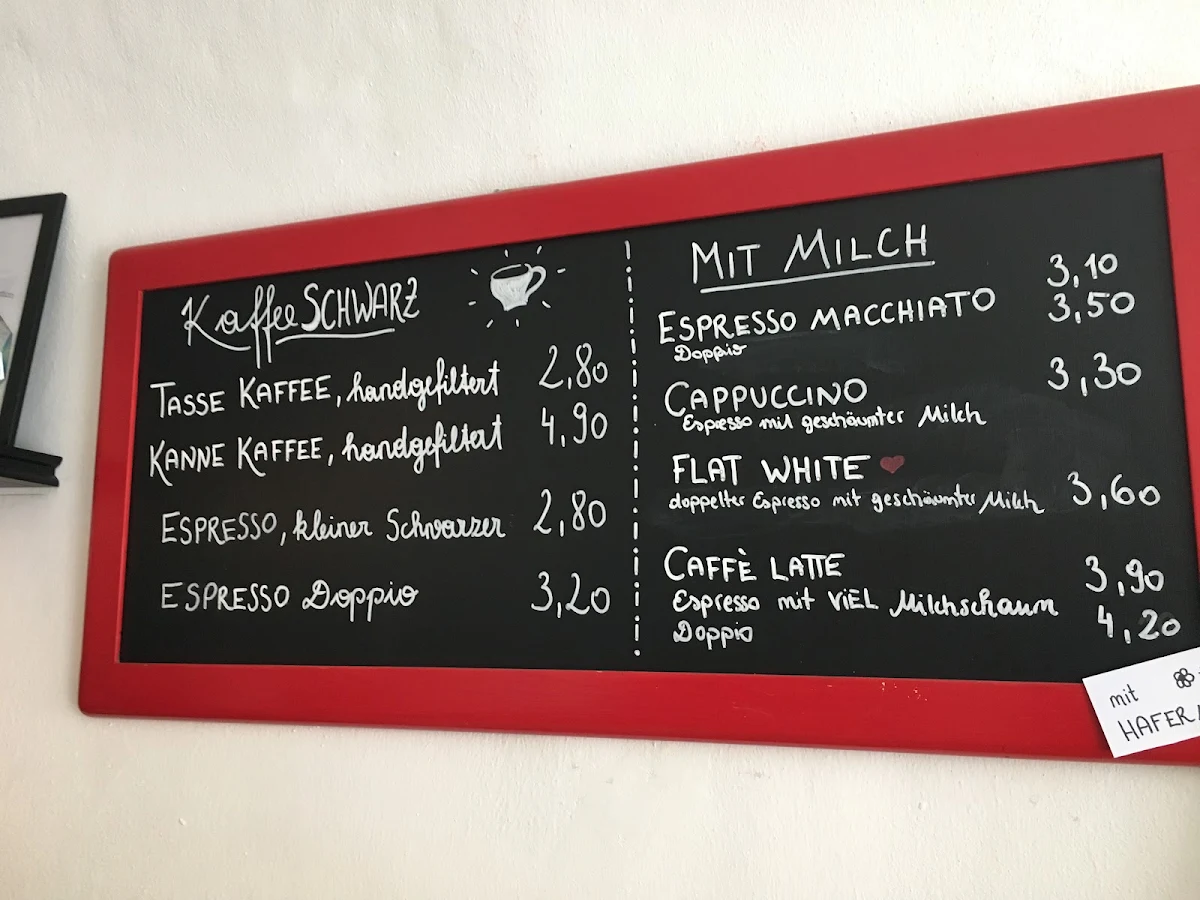 Kaffee SCHWARZ
TASSE KAFFEE, handgefiltert 2,80
KANNE KAFFEE, handgefiltert 4,90
ESPRESSO, kleiner Schwarzer 2,80
ESPRESSO Doppio 3,20
MIT MILCH
ESPRESSO MACCHIATO 3,10
Doppio 3,50
CAPPUCCINO 3,30
Espresso mit geschäumter Milch
FLAT WHITE
doppelter Espresso mit geschäumter Milch 3,60
CAFFÈ LATTE 3,90
Espresso mit VIEL Milchschaum
Doppio 4,20
mit
HAFER